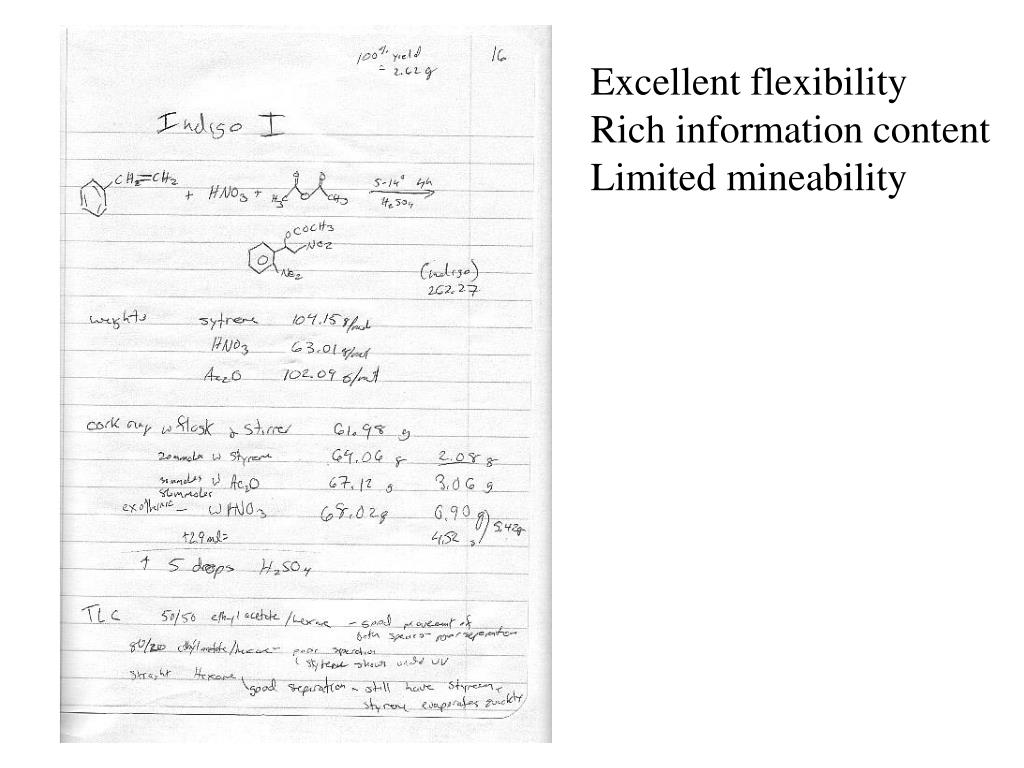 100% yield
= 2.62 g
16
Indigo I
CH=CH2
+ HNO3 +
H3C
O
CH3
5-14° 4h
H2SO4
OCOCH3
NO2
NO2
(indigo)
262.27
weights sytrene 104.15 g/mol
HNO3 63.01 g/mol
Ac2O 102.09 g/mol
cork ring w flask & stirrer 61.98 g
20 mmoles w styrene 64.06 g 2.08 g
w Ac2O 67.12 g 3.06 g
exotherm - w HNO3 68.02g
+2.9 ml= 4.52 g 5.42g
5 drops H2SO4
TLC 50/50 ethyl acetate/hexane - good movement of
both species - poor separation
ethyl acetate/hexane - poor separation
styrene shows under UV
straight Hexane good separation - still have styrene,
styrene evaporates quickly
Excellent flexibility
Rich information content
Limited mineability